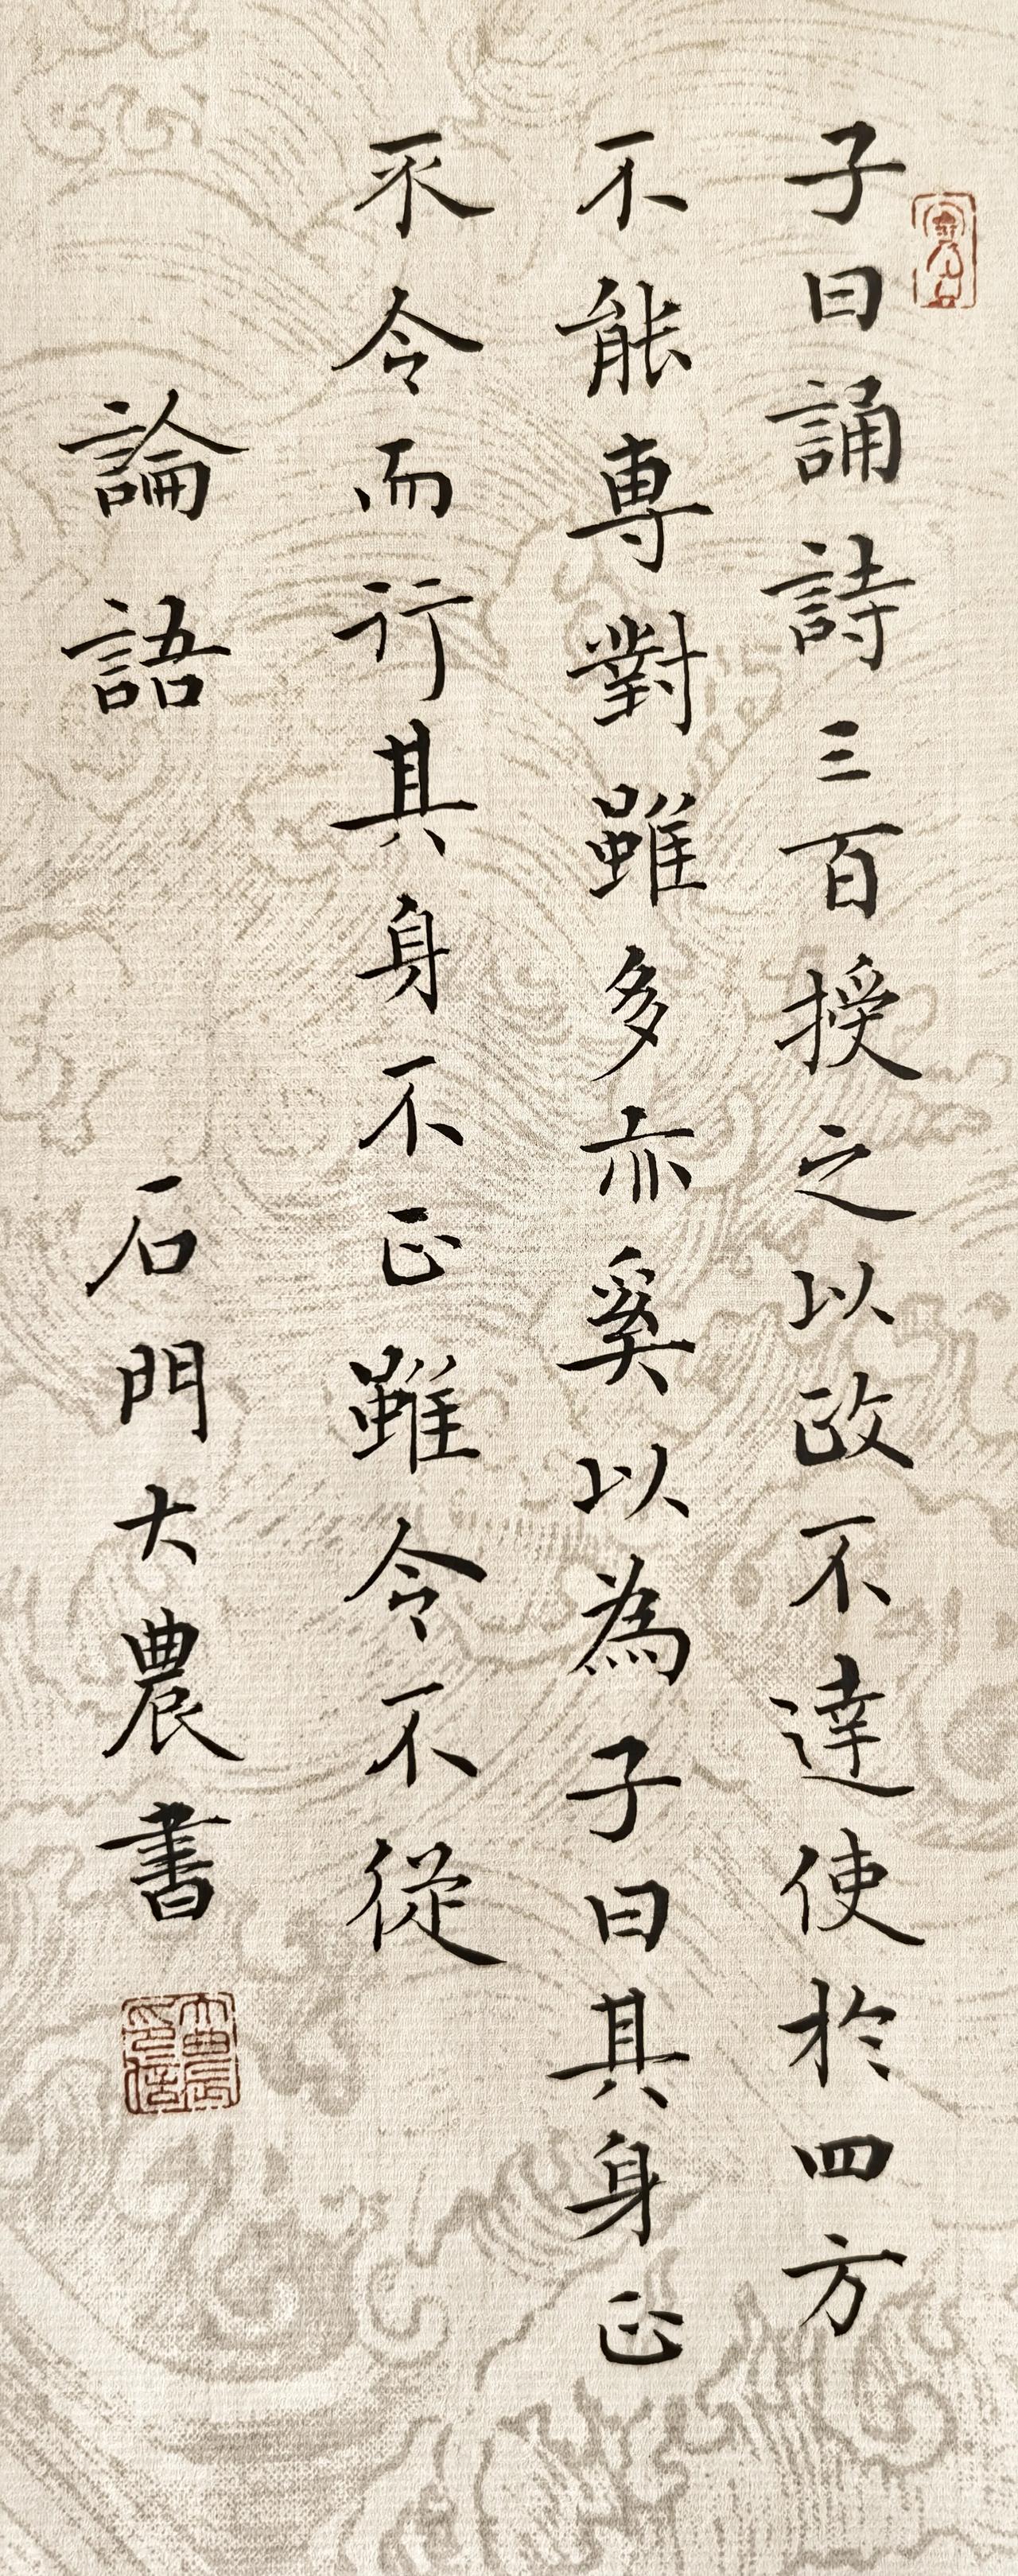 子曰誦詩三百授之以政不達使於四方
不能專對雖多亦奚以為子曰其身正
不令而行其身不正雖令不從
論語
石門大農書
大農印信